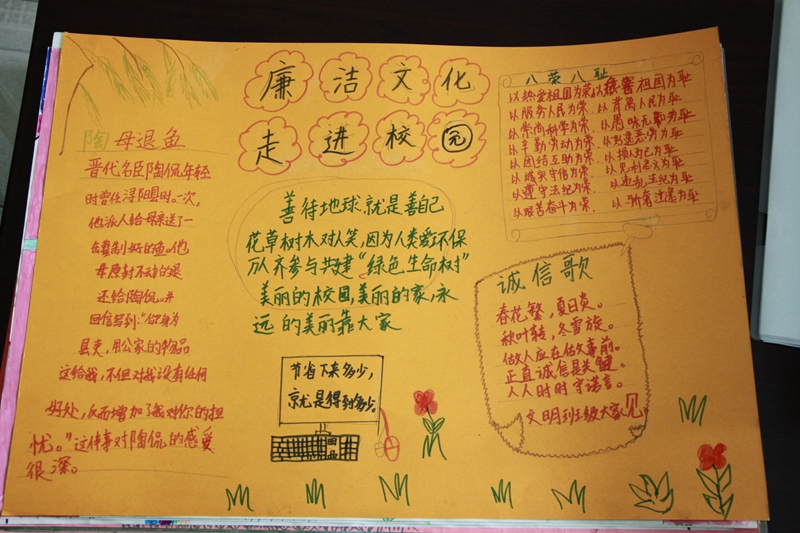 廉洁文化
走进校园
陶母退鱼
晋代名臣陶侃年轻
时曾任浔阳县吏。一次,
他派人给母亲送了一
罐制好的鱼。他
母原封不动的退
还给陶侃。并
回信写到:“你身为
县吏,用公家的物品
送给我,不但对我没有任何
好处,反而增加了我对你的担
忧。”这件事对陶侃的感受
很深。
善待地球.就是善自己
花草树木对人笑,因为人类爱环保
万人齐参与共建“绿色生命树”
美丽的校园,美丽的家,永
远的美丽靠大家
节省下来多少,
就是得到多少。
八荣八耻
以热爱祖国为荣以危害祖国为耻
以服务人民为荣.以背离人民为耻
以崇尚科学为荣.以愚昧无知为耻
以辛勤劳动为荣.以好逸恶劳为耻
以团结互助为荣.以损人利己为耻
以诚实守信为荣.以见利忘义为耻
以遵守法纪为荣.以违乱法纪为耻
以艰苦奋斗为荣.以骄奢淫逸为耻
诚信歌
春花繁,夏日炎。
秋叶转,冬雪旋。
做人应在做事前。
正直诚信是关键。
人人时时守诺言。
文明班级大家见